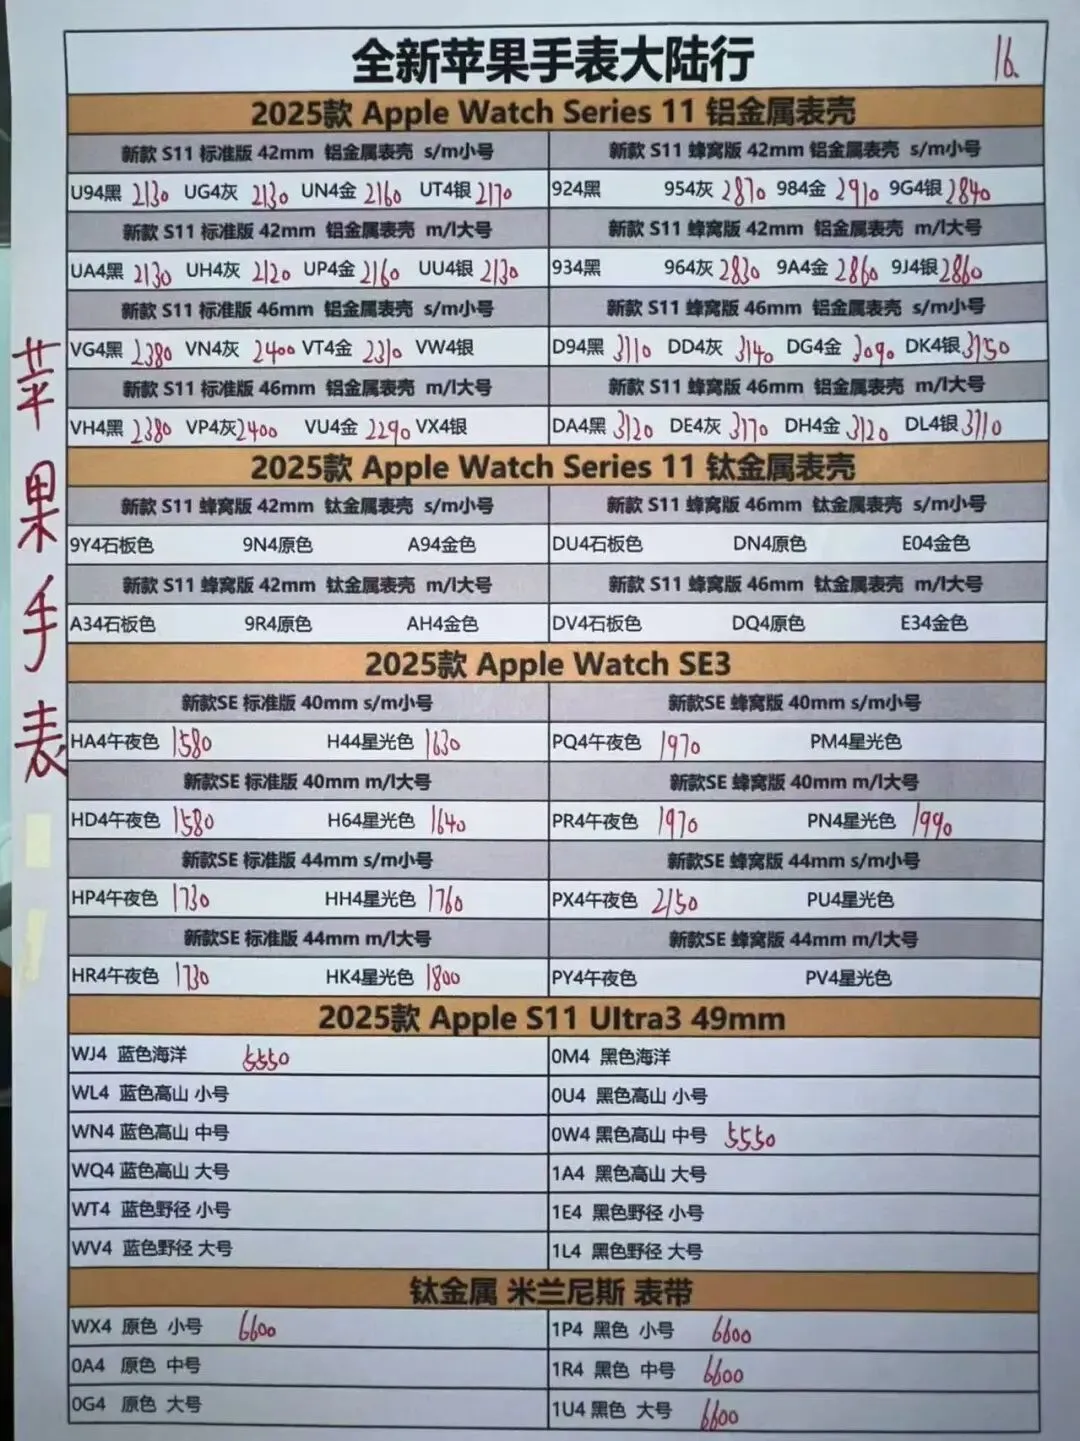 全新苹果手表大陆行 16.
2025款 Apple Watch Series 11 铝金属表壳
新款 S11 标准版 42mm 铝金属表壳 s/m小号 新款 S11 蜂窝版 42mm 铝金属表壳 s/m小号
U94黑 2130 UG4灰 2130 UN4金 2160 UT4银 2170 924黑 954灰 2870 984金 2910 9G4银 2840
新款 S11 标准版 42mm 铝金属表壳 m/l大号 新款 S11 蜂窝版 42mm 铝金属表壳 m/l大号
UA4黑 2130 UH4灰 2120 UP4金 2160 UU4银 2130 934黑 964灰 2830 9A4金 2860 9J4银 2860
新款 S11 标准版 46mm 铝金属表壳 s/m小号 新款 S11 蜂窝版 46mm 铝金属表壳 s/m小号
VG4黑 2380 VN4灰 2400 VT4金 2310 VW4银 D94黑 3110 DD4灰 3140 DG4金 3090 DK4银 3150
新款 S11 标准版 46mm 铝金属表壳 m/l大号 新款 S11 蜂窝版 46mm 铝金属表壳 m/l大号
VH4黑 2380 VP4灰 2400 VU4金 2290 VX4银 DA4黑 3120 DE4灰 3170 DH4金 3120 DL4银 3110
2025款 Apple Watch Series 11 钛金属表壳
新款 S11 蜂窝版 42mm 钛金属表壳 s/m小号 新款 S11 蜂窝版 46mm 钛金属表壳 s/m小号
9Y4石板色 9N4原色 A94金色 DU4石板色 DN4原色 E04金色
新款 S11 蜂窝版 42mm 钛金属表壳 m/l大号 新款 S11 蜂窝版 46mm 钛金属表壳 m/l大号
A34石板色 9R4原色 AH4金色 DV4石板色 DQ4原色 E34金色
2025款 Apple Watch SE3
新款SE 标准版 40mm s/m小号 新款SE 蜂窝版 40mm s/m小号
HA4午夜色 1580 H44星光色 1630 PQ4午夜色 1970 PM4星光色
新款SE 标准版 40mm m/l大号 新款SE 蜂窝版 40mm m/l大号
HD4午夜色 1580 H64星光色 1640 PR4午夜色 1970 PN4星光色 1990
新款SE 标准版 44mm s/m小号 新款SE 蜂窝版 44mm s/m小号
HP4午夜色 1730 HH4星光色 1760 PX4午夜色 2150 PU4星光色
新款SE 标准版 44mm m/l大号 新款SE 蜂窝版 44mm m/l大号
HR4午夜色 1730 HK4星光色 1800 PY4午夜色 PV4星光色
2025款 Apple S11 Ultra3 49mm
WJ4 蓝色海洋 5550 0M4 黑色海洋
WL4 蓝色高山 小号 0U4 黑色高山 小号
WN4 蓝色高山 中号 0W4 黑色高山 中号 5550
WQ4 蓝色高山 大号 1A4 黑色高山 大号
WT4 蓝色野径 小号 1E4 黑色野径 小号
WV4 蓝色野径 大号 1L4 黑色野径 大号
钛金属 米兰尼斯 表带
WX4 原色 小号 6600 1P4 黑色 小号 6600
0A4 原色 中号 1R4 黑色 中号 6600
0G4 原色 大号 1U4 黑色 大号 6600
苹果手表